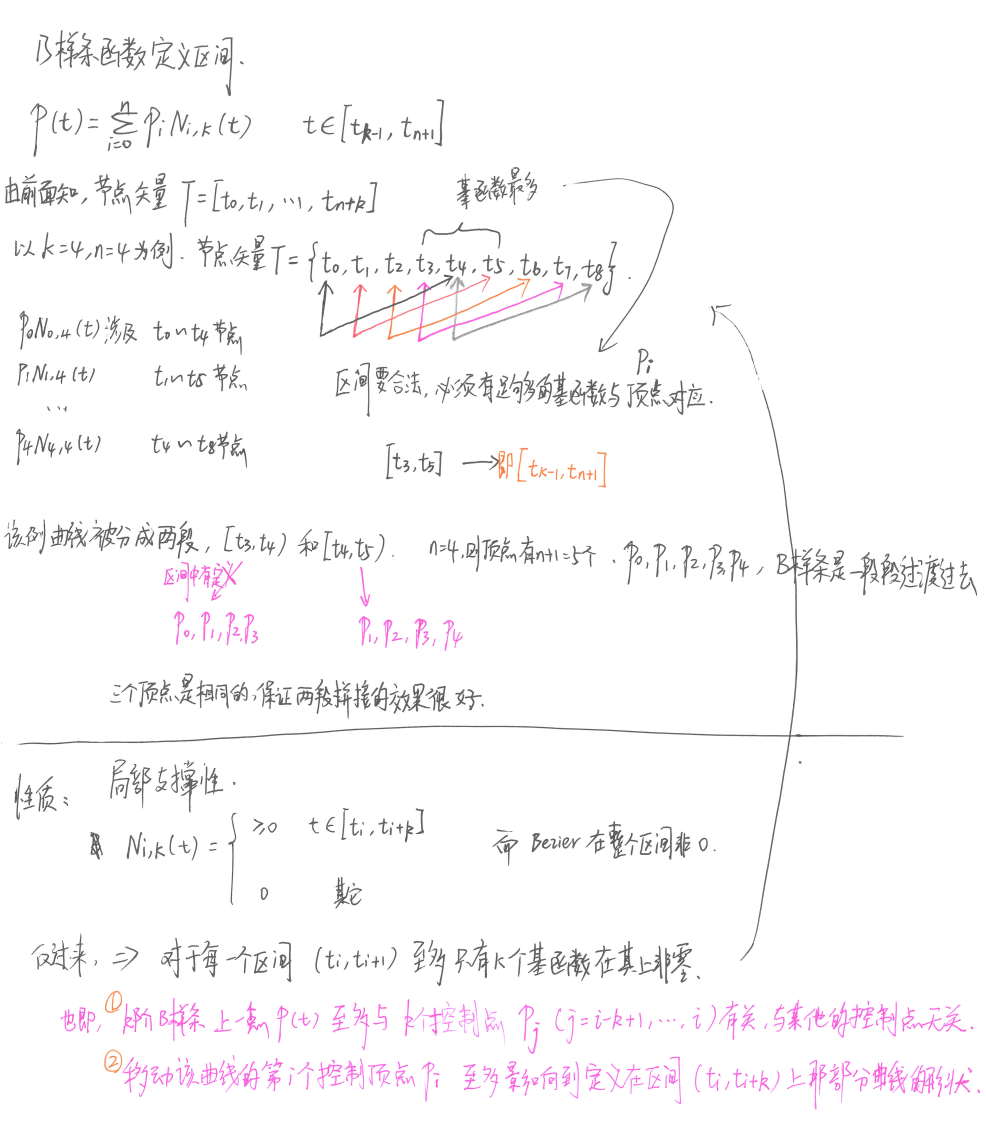 B样条函数定义区间.
P(t)=∑_{i=0}^{n} P_i N_{i,k}(t)    t∈[t_{k-1}, t_{n+1}]
由前面知, 节点矢量 T=[t_0,t_1,…,t_{n+k}]
基函数最多
以k=4,n=4为例. 节点矢量T={t_0,t_1,t_2,t_3,t_4,t_5,t_6,t_7,t_8}.
P_0N_{0,4}(t)涉及 t_0~t_4节点
P_1N_{1,4}(t) t_1~t_5节点
…
P_4N_{4,4}(t) t_4~t_8节点
P_i
区间要合法, 必须有足够多的基函数与顶点对应.
[t_3,t_5] → 即[t_{k-1},t_{n+1}]
该例曲线被分成两段, [t_3,t_4) 和[t_4,t_5). n=4,则顶点有n+1=5个. P_0,P_1,P_2,P_3,P_4, B样条是一段段过渡过去
区间中有定义
P_0,P_1,P_2,P_3    P_1,P_2,P_3,P_4
三个顶点是相同的,保证两段拼接的效果很好.
性质: 局部支撑性.
N_{i,k}(t)={ ≥0 t∈[t_i,t_{i+k}]
0 其它
而 Bezier 在整个区间非0.
反过来, ⇒ 对于每一个区间 (t_i,t_{i+1}) 至多只有k个基函数在其上非零.
也即, ① k阶B样条上一点P(t) 至多与k个控制点 P_j (j=i-k+1,…,i)有关,与其他的控制点无关.
② 移动该曲线的第i个控制顶点P_i 至多影响到定义在区间 (t_i,t_{i+k}) 上那部分曲线的形状.